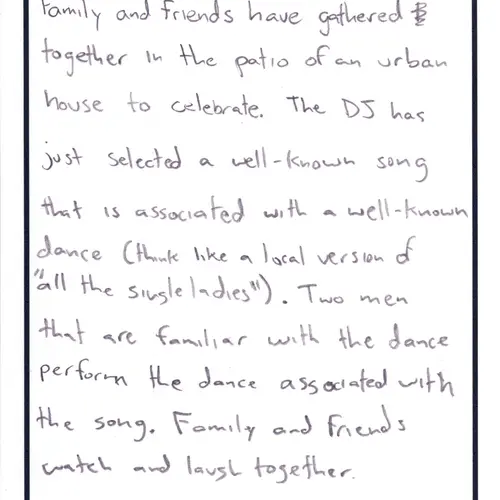 family and friends have gathered
together in the patio of an urban
house to celebrate. The DJ has
just selected a well-known song
that is associated with a well-known
dance (think like a local version of
"all the single ladies"). Two men
that are familiar with the dance
perform the dance associated with
the song. Family and friends
watch and laugh together.